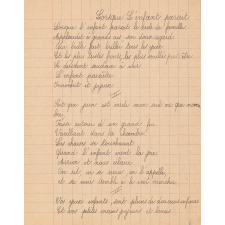 Lorsque L'enfant parait
Lorsque l'enfant parait le cercle de famille
Applaudit à grands cris son doux regard
Qui brille fait briller tous les yeux
Et les plus tristes fronts, les plus souillés peut-être
Se dérident soudain à voir
L'enfant paraître
Innocent et joyeux
Soit que juin ait verdi mon seuil ou que novem
bre
Fasse autour d'un grand feu
Vacillant dans la chambre
Les chaises se
Quand l'enfant vient la joie
Arrive et nous éclaire
On rit on se on l'appelle
et sa mère tremble à le voir marcher
enfants sont pleins de douceurs infinies
Et leurs petites mains joyeuses et bénies